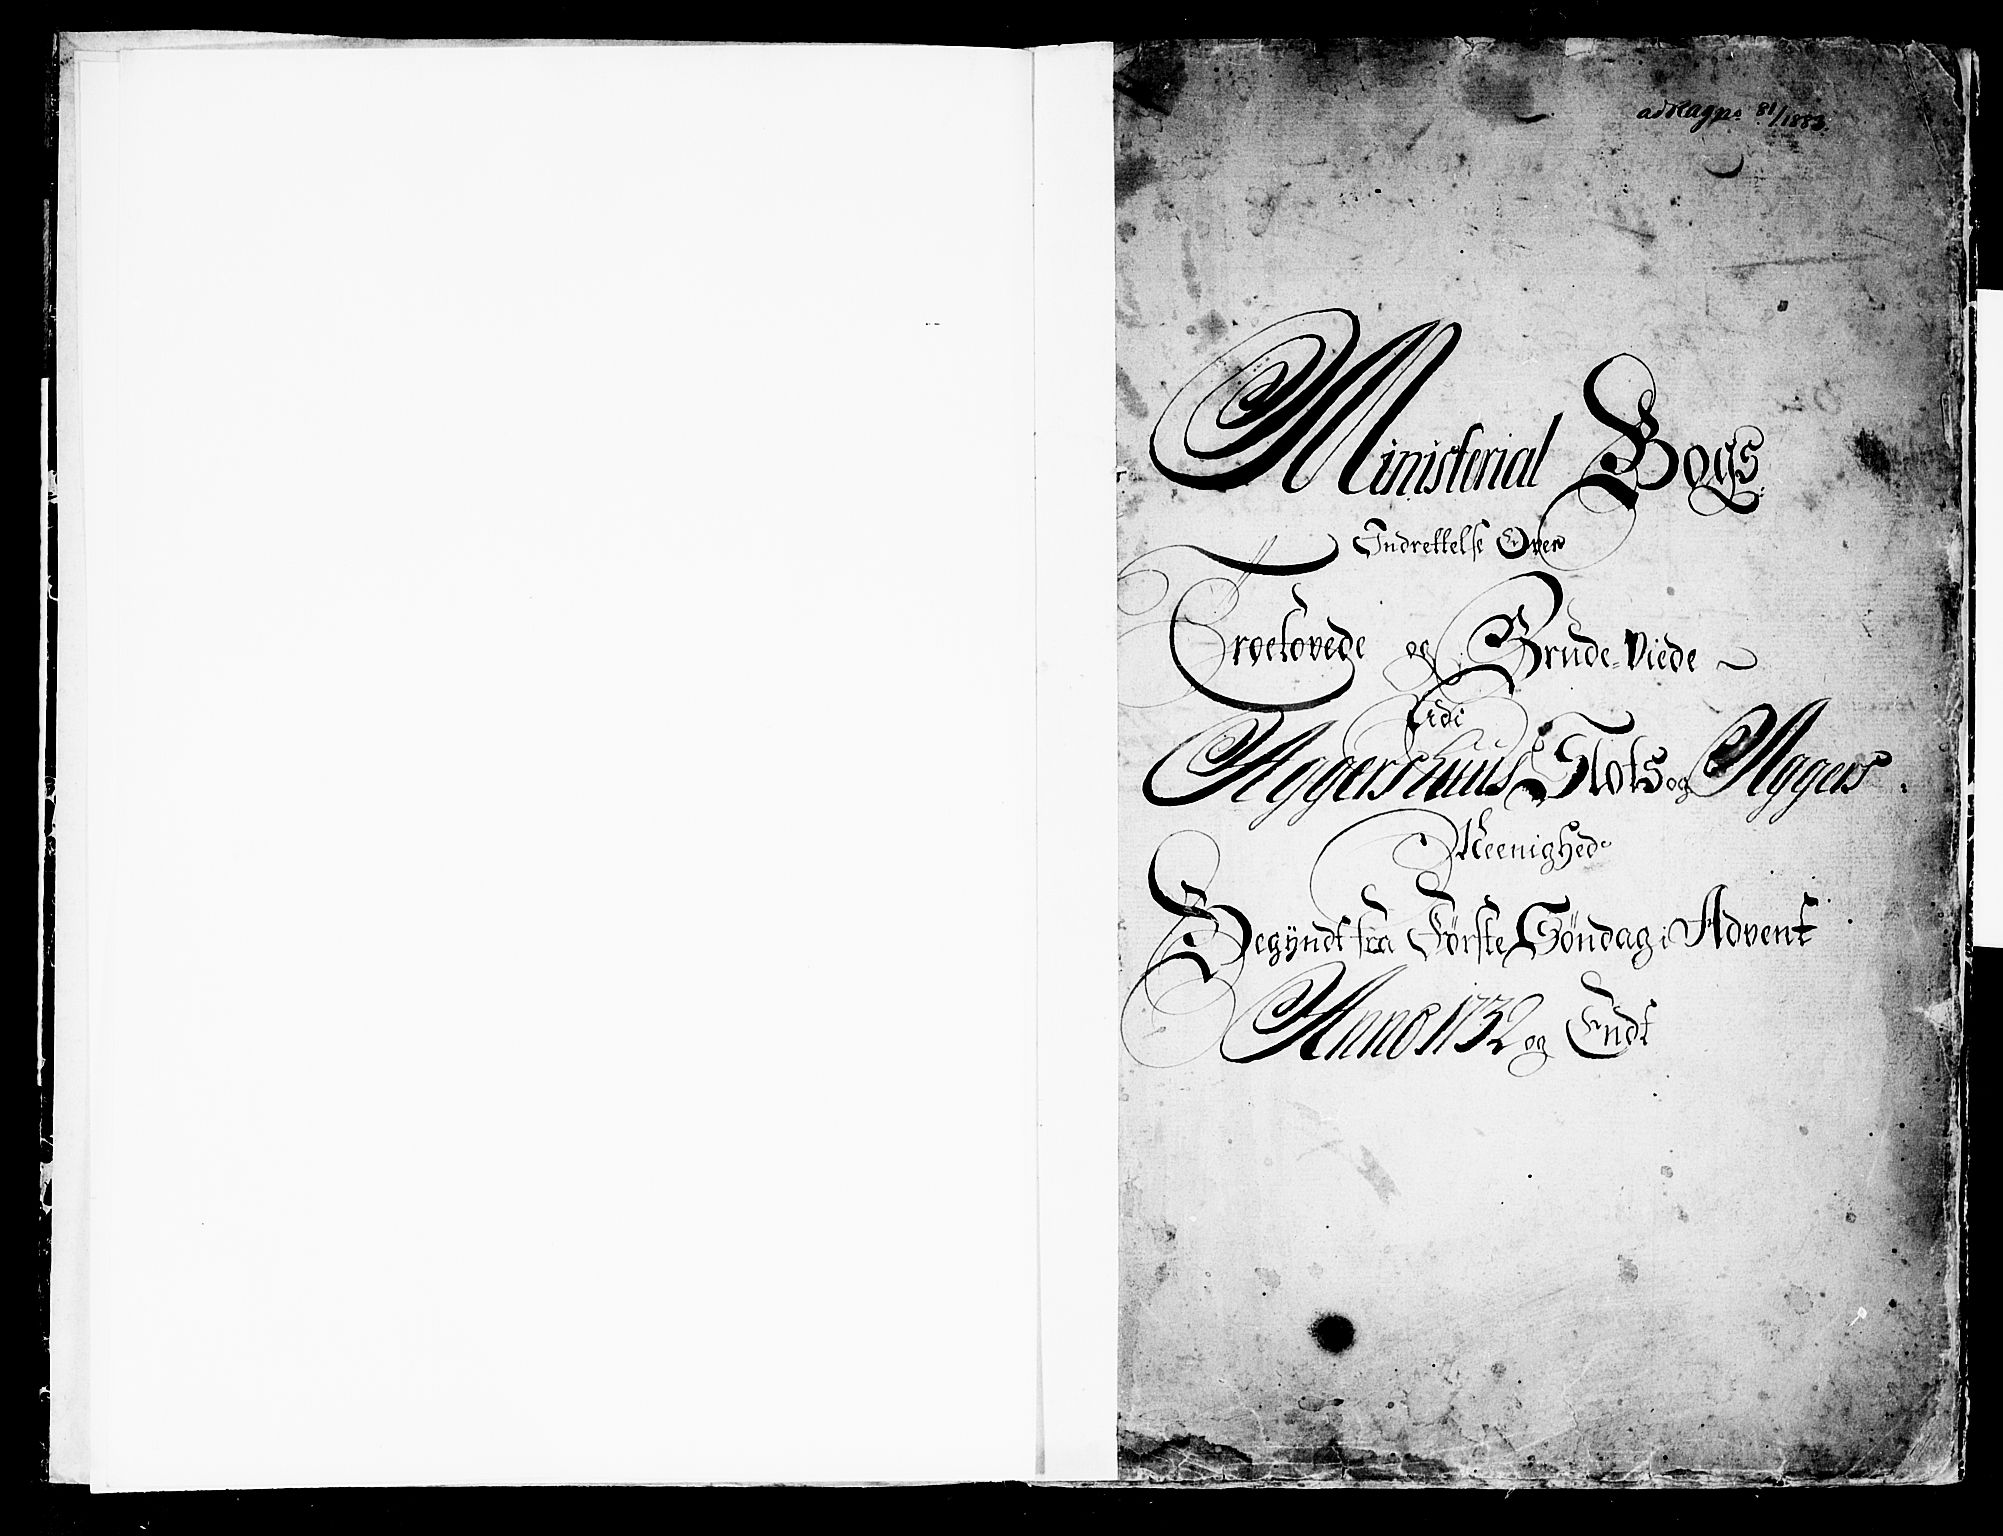 ad Ragno 81/1883.
Ministerial Bogs
Indrettelse Over
Troelovede og Brude-Viede
Udi
Aggershuus Slots og Aggers
Meenighed
Begÿndt fra Første Søndag i Advent
Anno 1732 og Endt